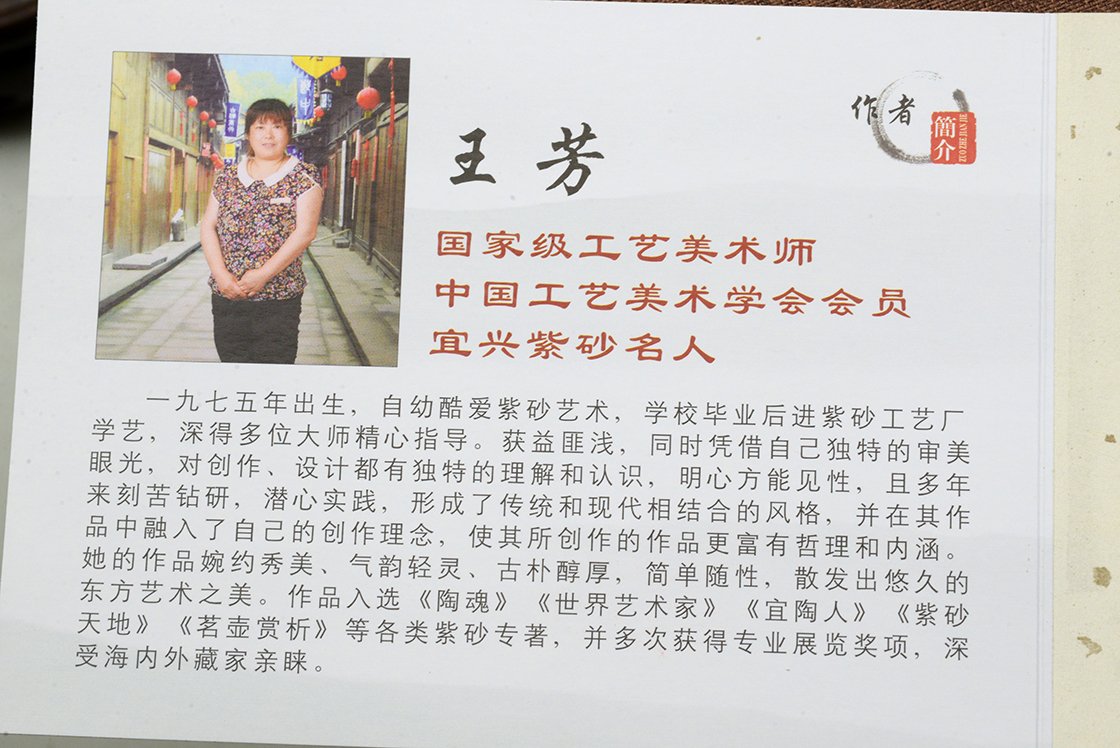 作者
簡介
ZUO ZHE JIAN JIE
王芳
国家级工艺美术师
中国工艺美术学会会员
宜兴紫砂名人
一九七五年出生，自幼酷爱紫砂艺术，学校毕业后进紫砂工艺厂
学艺，深得多位大师精心指导。获益匪浅，同时凭借自己独特的审美
眼光，对创作、设计都有独特的理解和认识，明心方能见性，且多年
来刻苦钻研，潜心实践，形成了传统和现代相结合的风格，并在其作
品中融入了自己的创作理念，使其所创作的作品更富有哲理和内涵。
她的作品婉约秀美、气韵轻灵、古朴醇厚，简单随性，散发出悠久的
东方艺术之美。作品入选《陶魂》《世界艺术家》《宜陶人》《紫砂
天地》《茗壶赏析》等各类紫砂专著，并多次获得专业展览奖项，深
受海内外藏家亲睐。